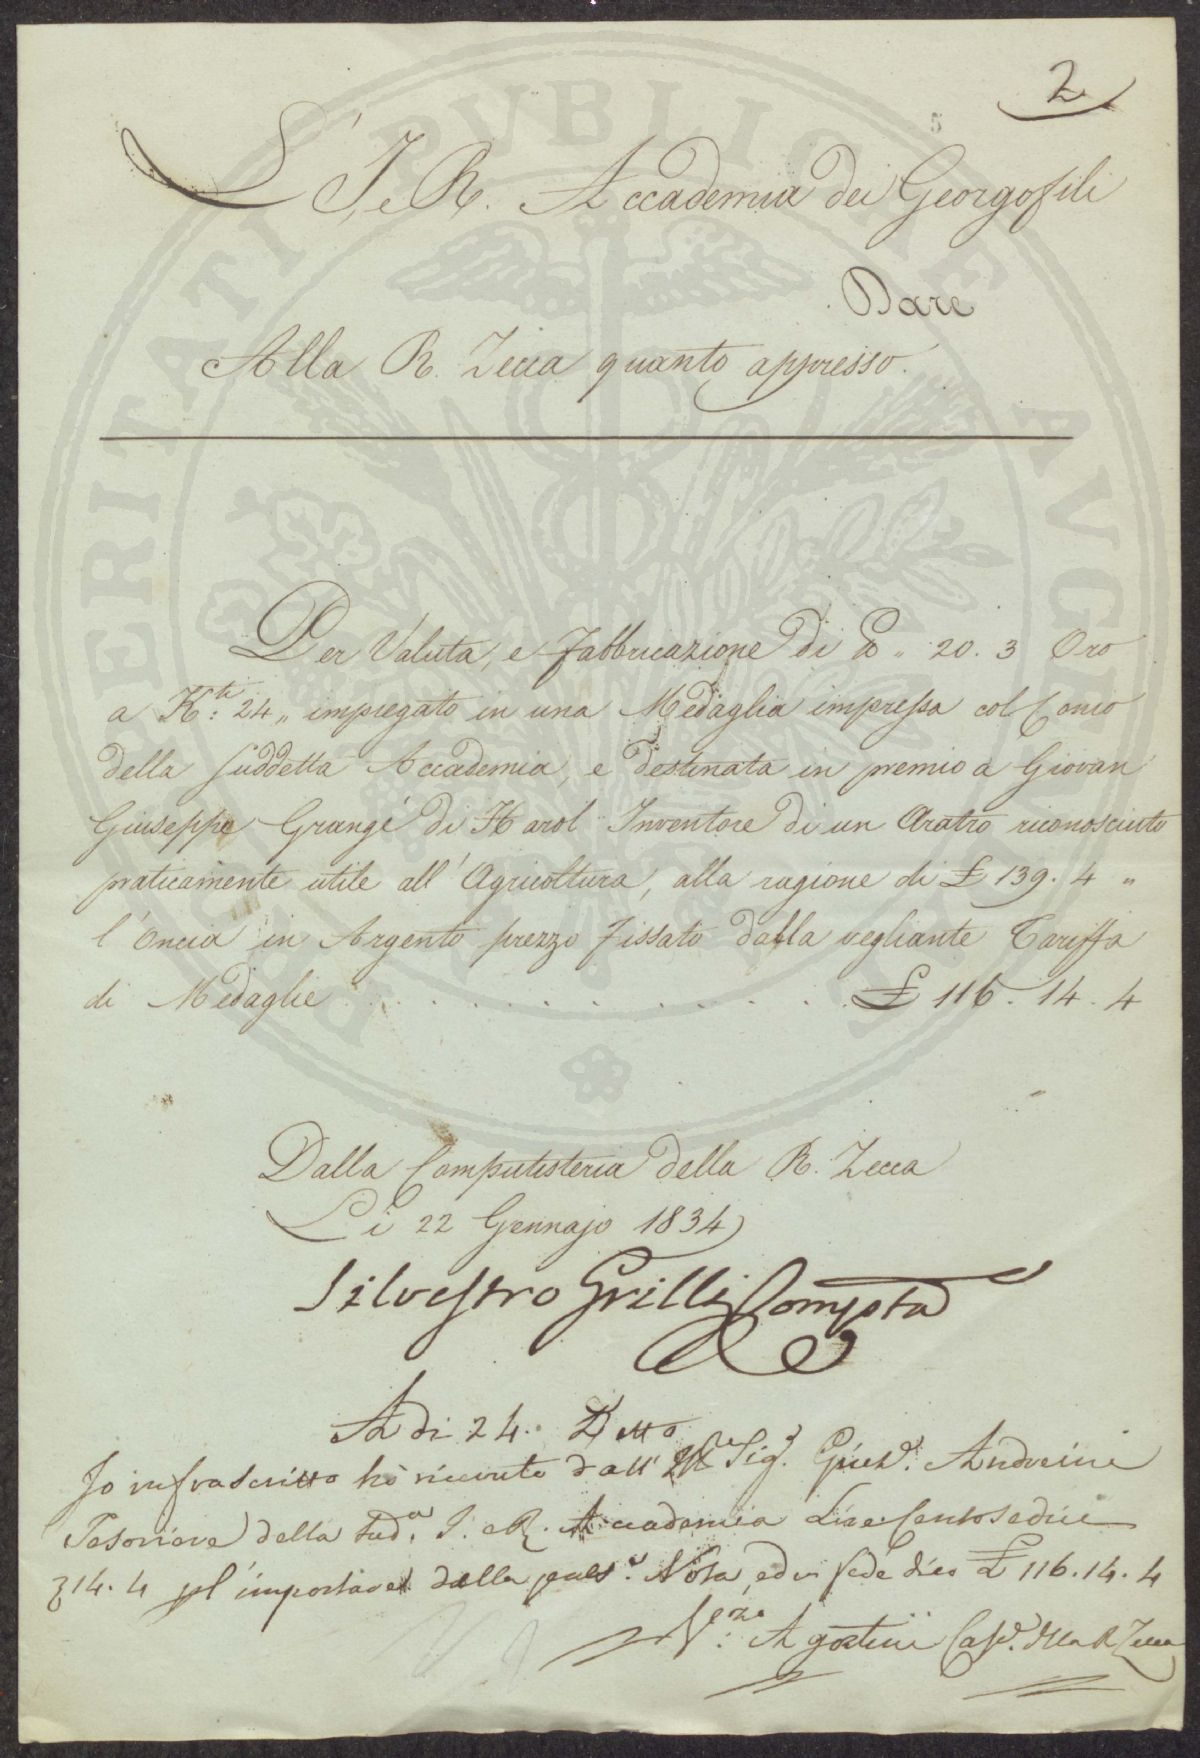 2
5
L'I. e R. Accademia dei Georgofili
Dare
Alla R. Zecca quanto appresso.
Per Valuta, e Fabbricazione di 20. 3 Oro
a K.ti 24 „ impiegato in una Medaglia impressa col Conio
della suddetta Accademia, e destinata in premio a Giovan
Giuseppe Grangé di Harol Inventore di un Aratro riconosciuto
praticamente utile all'Agricoltura, alla ragione di £ 139. 4 „
l'Oncia in Argento prezzo fissato dalla vegliante Tariffa
di Medaglie . . . . . . . . . . . £ 116. 14. 4
Dalla Computisteria della R. Zecca
Li 22 Gennajo 1834
Silvestro Grilli Compsta
A di 24. Detto
Io infrascritto hò ricevuto dall' Sig.r Andreini
Tesoriere della sud.a I. e R. Accademia Lire Centosedici
14. 4 pl'importare della Nota, ed in fede dico £ 116. 14. 4
Agostini della R Zecca
PROSPERITATI PVBLICAE AVGENDAE